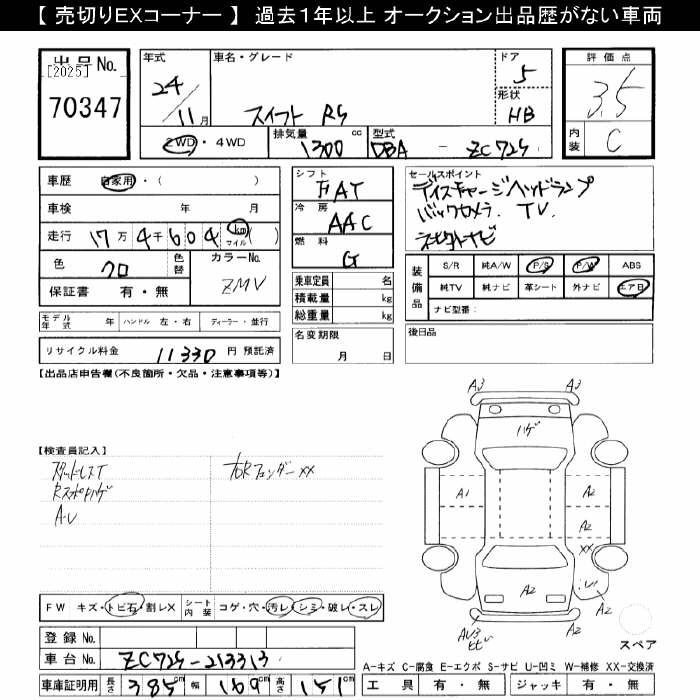 【 売切りEXコーナー 】 過去１年以上 オークション出品歴がない車両
出品No.
[2025]
70347
年式
24/11月
車名・グレード
スイフト RS
ドア
5
形状
HB
評価点
3.5
内装
C
2WD・4WD
排気量
1300 cc
型式
DBA - ZC72S
車歴 自家用・( )
車検 年 月
走行 17万4千604 km マイル ( )
色 クロ
色替
カラーNo.
ZMV
保証書 有・無
モデル年式 年 ハンドル 左・右 ディーラー・並行
リサイクル料金 11330 円 預託済
シフト
FAT
冷房
AAC
燃料
G
乗車定員 名
積載量 kg
総重量 kg
名変期限
月 日
セールスポイント
ディスチャージヘッドランプ
バックカメラ. TV.
装備品
S/R 純A/W P/S P/W ABS
純TV 純ナビ 革シート 外ナビ エアB
ナビ型番:
後日品
【出品店申告欄(不良箇所・欠品・注意事項等)】
【検査員記入】
右Rフェンダー XX
A-U
A3
A3
ハゲ
A1
A2
A2
XX
A2
A2
AU3
FW キズ・トビ石・割レX
シート内装
コゲ・穴・汚レ・シミ・破レ・スレ
登録No.
車台No. ZC72S-213313
車庫証明用 長さ 385cm 幅 169cm 高さ 151cm
スペア
A-キズ C-腐食 E-エクボ S-サビ U-凹ミ W-補修 XX-交換済
工具 有・無 ジャッキ 有・無